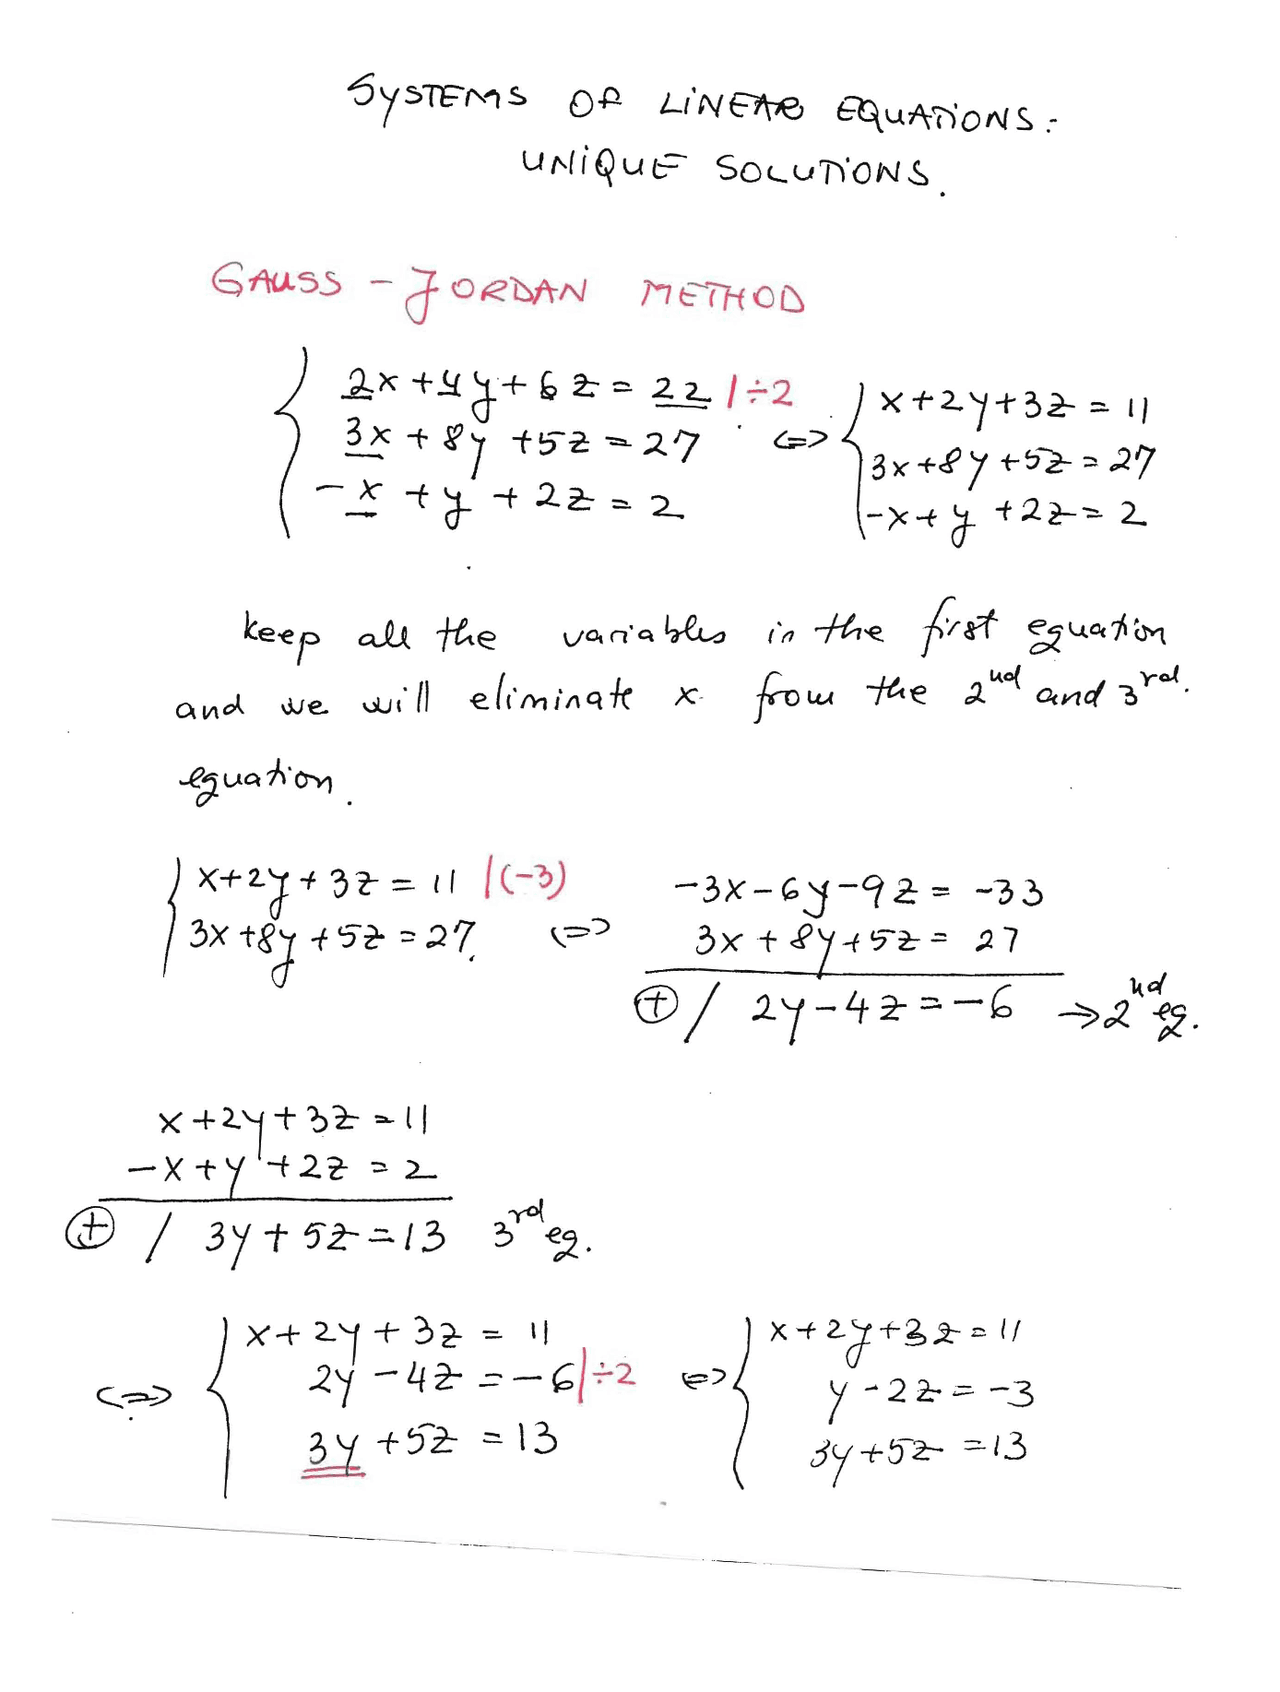 SYSTEMS OF LINEAR EQUATIONS:
UNIQUE SOLUTIONS.
GAUSS - JORDAN METHOD
2x+4y+6z=22 |÷2 x+2y+3z=11
3x+8y+5z=27 <=> 3x+8y+5z=27
-x+y+2z=2 -x+y+2z=2
keep all the variables in the first equation
and we will eliminate x from the 2nd and 3rd.
equation.
x+2y+3z=11 |(-3) -3x-6y-9z=-33
3x+8y+5z=27. <=> 3x+8y+5z=27
⊕ / 2y-4z=-6 → 2nd eq.
x+2y+3z=11
-x+y+2z=2
⊕ / 3y+5z=13 3rd eq.
x+2y+3z=11 x+2y+3z=11
<=> 2y-4z=-6 |÷2 <=> y-2z=-3
3y+5z=13 3y+5z=13